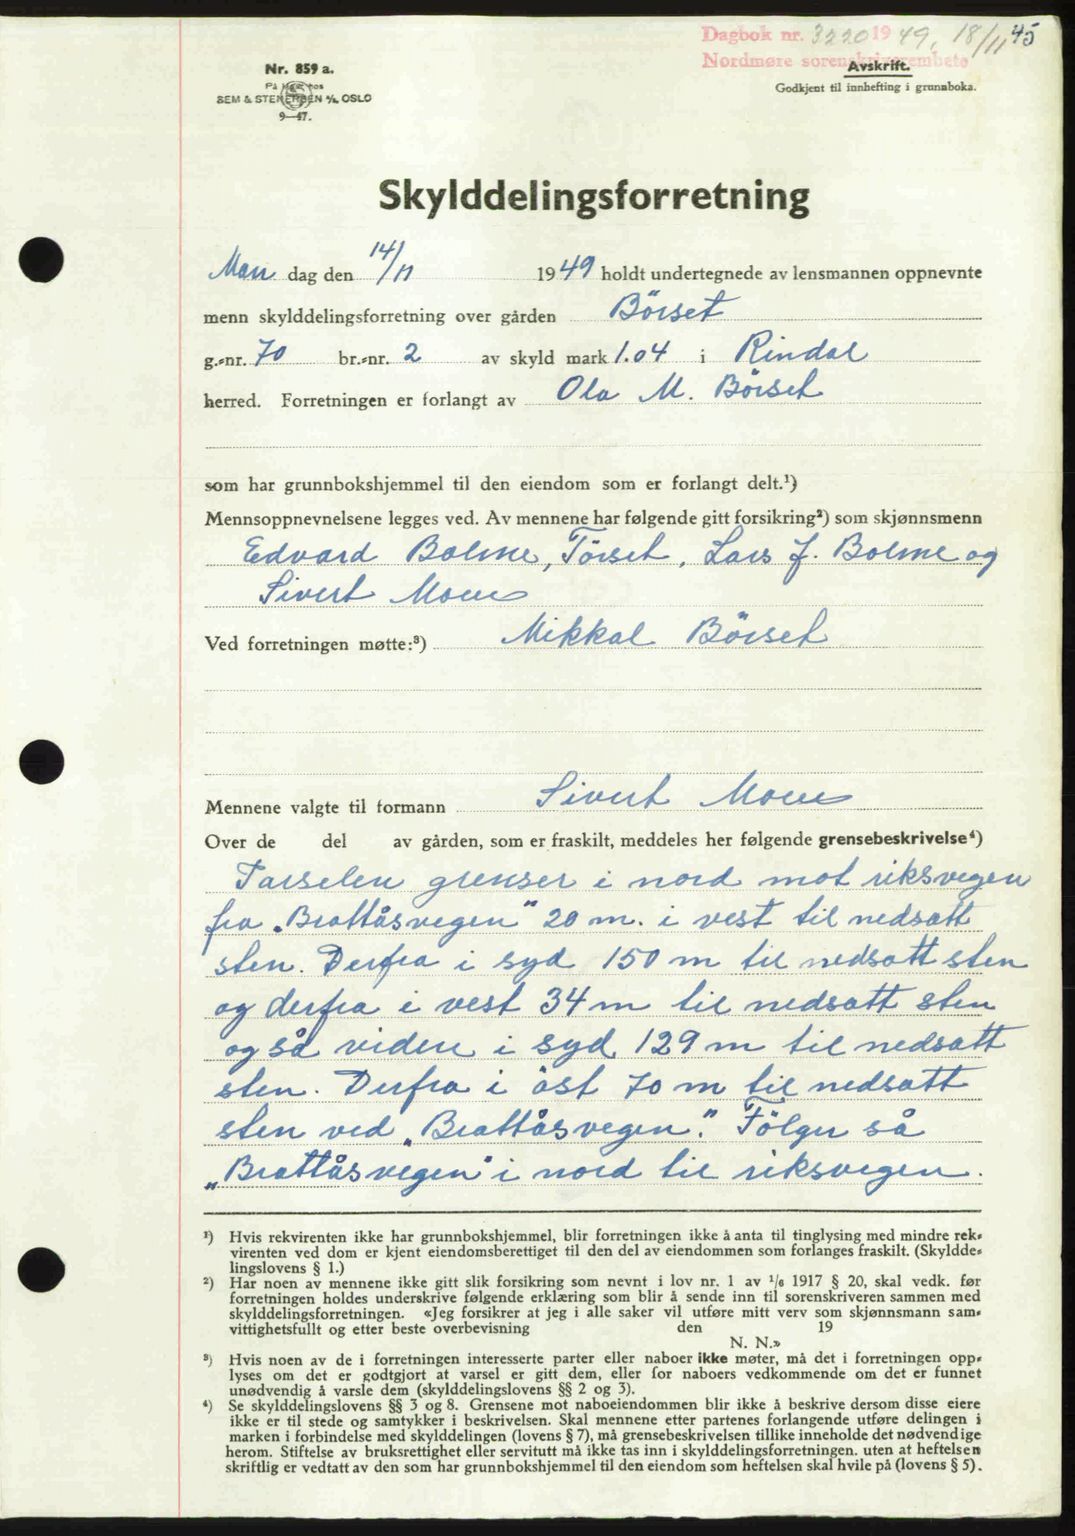 Dagbok nr. 3220 1949, 18/11 45
Nordmøre sorenskriverembete
Avskrift.
Godkjent til innhefting i grunnboka.
Nr. 859 a.
På lager hos
SEM & STENERSEN A/S, OSLO
9—47.
Skylddelingsforretning
Man dag den 14/11 1949 holdt undertegnede av lensmannen oppnevnte
menn skylddelingsforretning over gården Börset
g.-nr. 70 br.-nr. 2 av skyld mark 1.04 i Rindal
herred. Forretningen er forlangt av Ola M. Börset
som har grunnbokshjemmel til den eiendom som er forlangt delt.¹)
Mennsoppnevnelsene legges ved. Av mennene har følgende gitt forsikring²) som skjønnsmenn
Edvard Bolme, Törset, Lars J. Bolme og
Sivert Moen
Ved forretningen møtte:³) Mikkal Börset
Mennene valgte til formann Sivert Moen
Over de del av gården, som er fraskilt, meddeles her følgende grensebeskrivelse⁴)
Parselen grenser i nord mot riksvegen
fra „Brattåsvegen" 20 m. i vest til nedsatt
sten. Derfra i syd 150 m til nedsatt sten
og derfra i vest 34 m til nedsatt sten
og så videre i syd 129 m til nedsatt
sten. Derfra i öst 70 m til nedsatt
sten ved „Brattåsvegen". Fölger så
„Brattåsvegen" i nord til riksvegen.
¹) Hvis rekvirenten ikke har grunnbokshjemmel, blir forretningen ikke å anta til tinglysing med mindre rek-
virenten ved dom er kjent eiendomsberettiget til den del av eiendommen som forlanges fraskilt. (Skyldde-
lingslovens § 1.)
²) Har noen av mennene ikke gitt slik forsikring som nevnt i lov nr. 1 av 1/6 1917 § 20, skal vedk. før
forretningen holdes underskrive følgende erklæring som blir å sende inn til sorenskriveren sammen med
skylddelingsforretningen. «Jeg forsikrer at jeg i alle saker vil utføre mitt verv som skjønnsmann sam-
vittighetsfullt og etter beste overbevisning den 19
N. N.»
³) Hvis noen av de i forretningen interesserte parter eller naboer ikke møter, må det i forretningen opp-
lyses om det er godtgjort at varsel er gitt dem, eller for naboers vedkommende om det er funnet
unødvendig å varsle dem (skylddelingslovens §§ 2 og 3).
⁴) Se skylddelingslovens §§ 3 og 8. Grensene mot naboeiendommen blir ikke å beskrive dersom disse eiere
ikke er til stede og samtykker i beskrivelsen. Skal mennene etter partenes forlangende utføre delingen i
marken i forbindelse med skylddelingen (lovens § 7), må grensebeskrivelsen tillike inneholde det nødvendige
herom. Stiftelse av bruksrettighet eller servitutt må ikke tas inn i skylddelingsforretningen. uten at heftelsen
skriftlig er vedtatt av den som har grunnbokshjemmel til den eiendom som heftelsen skal hvile på (lovens § 5).